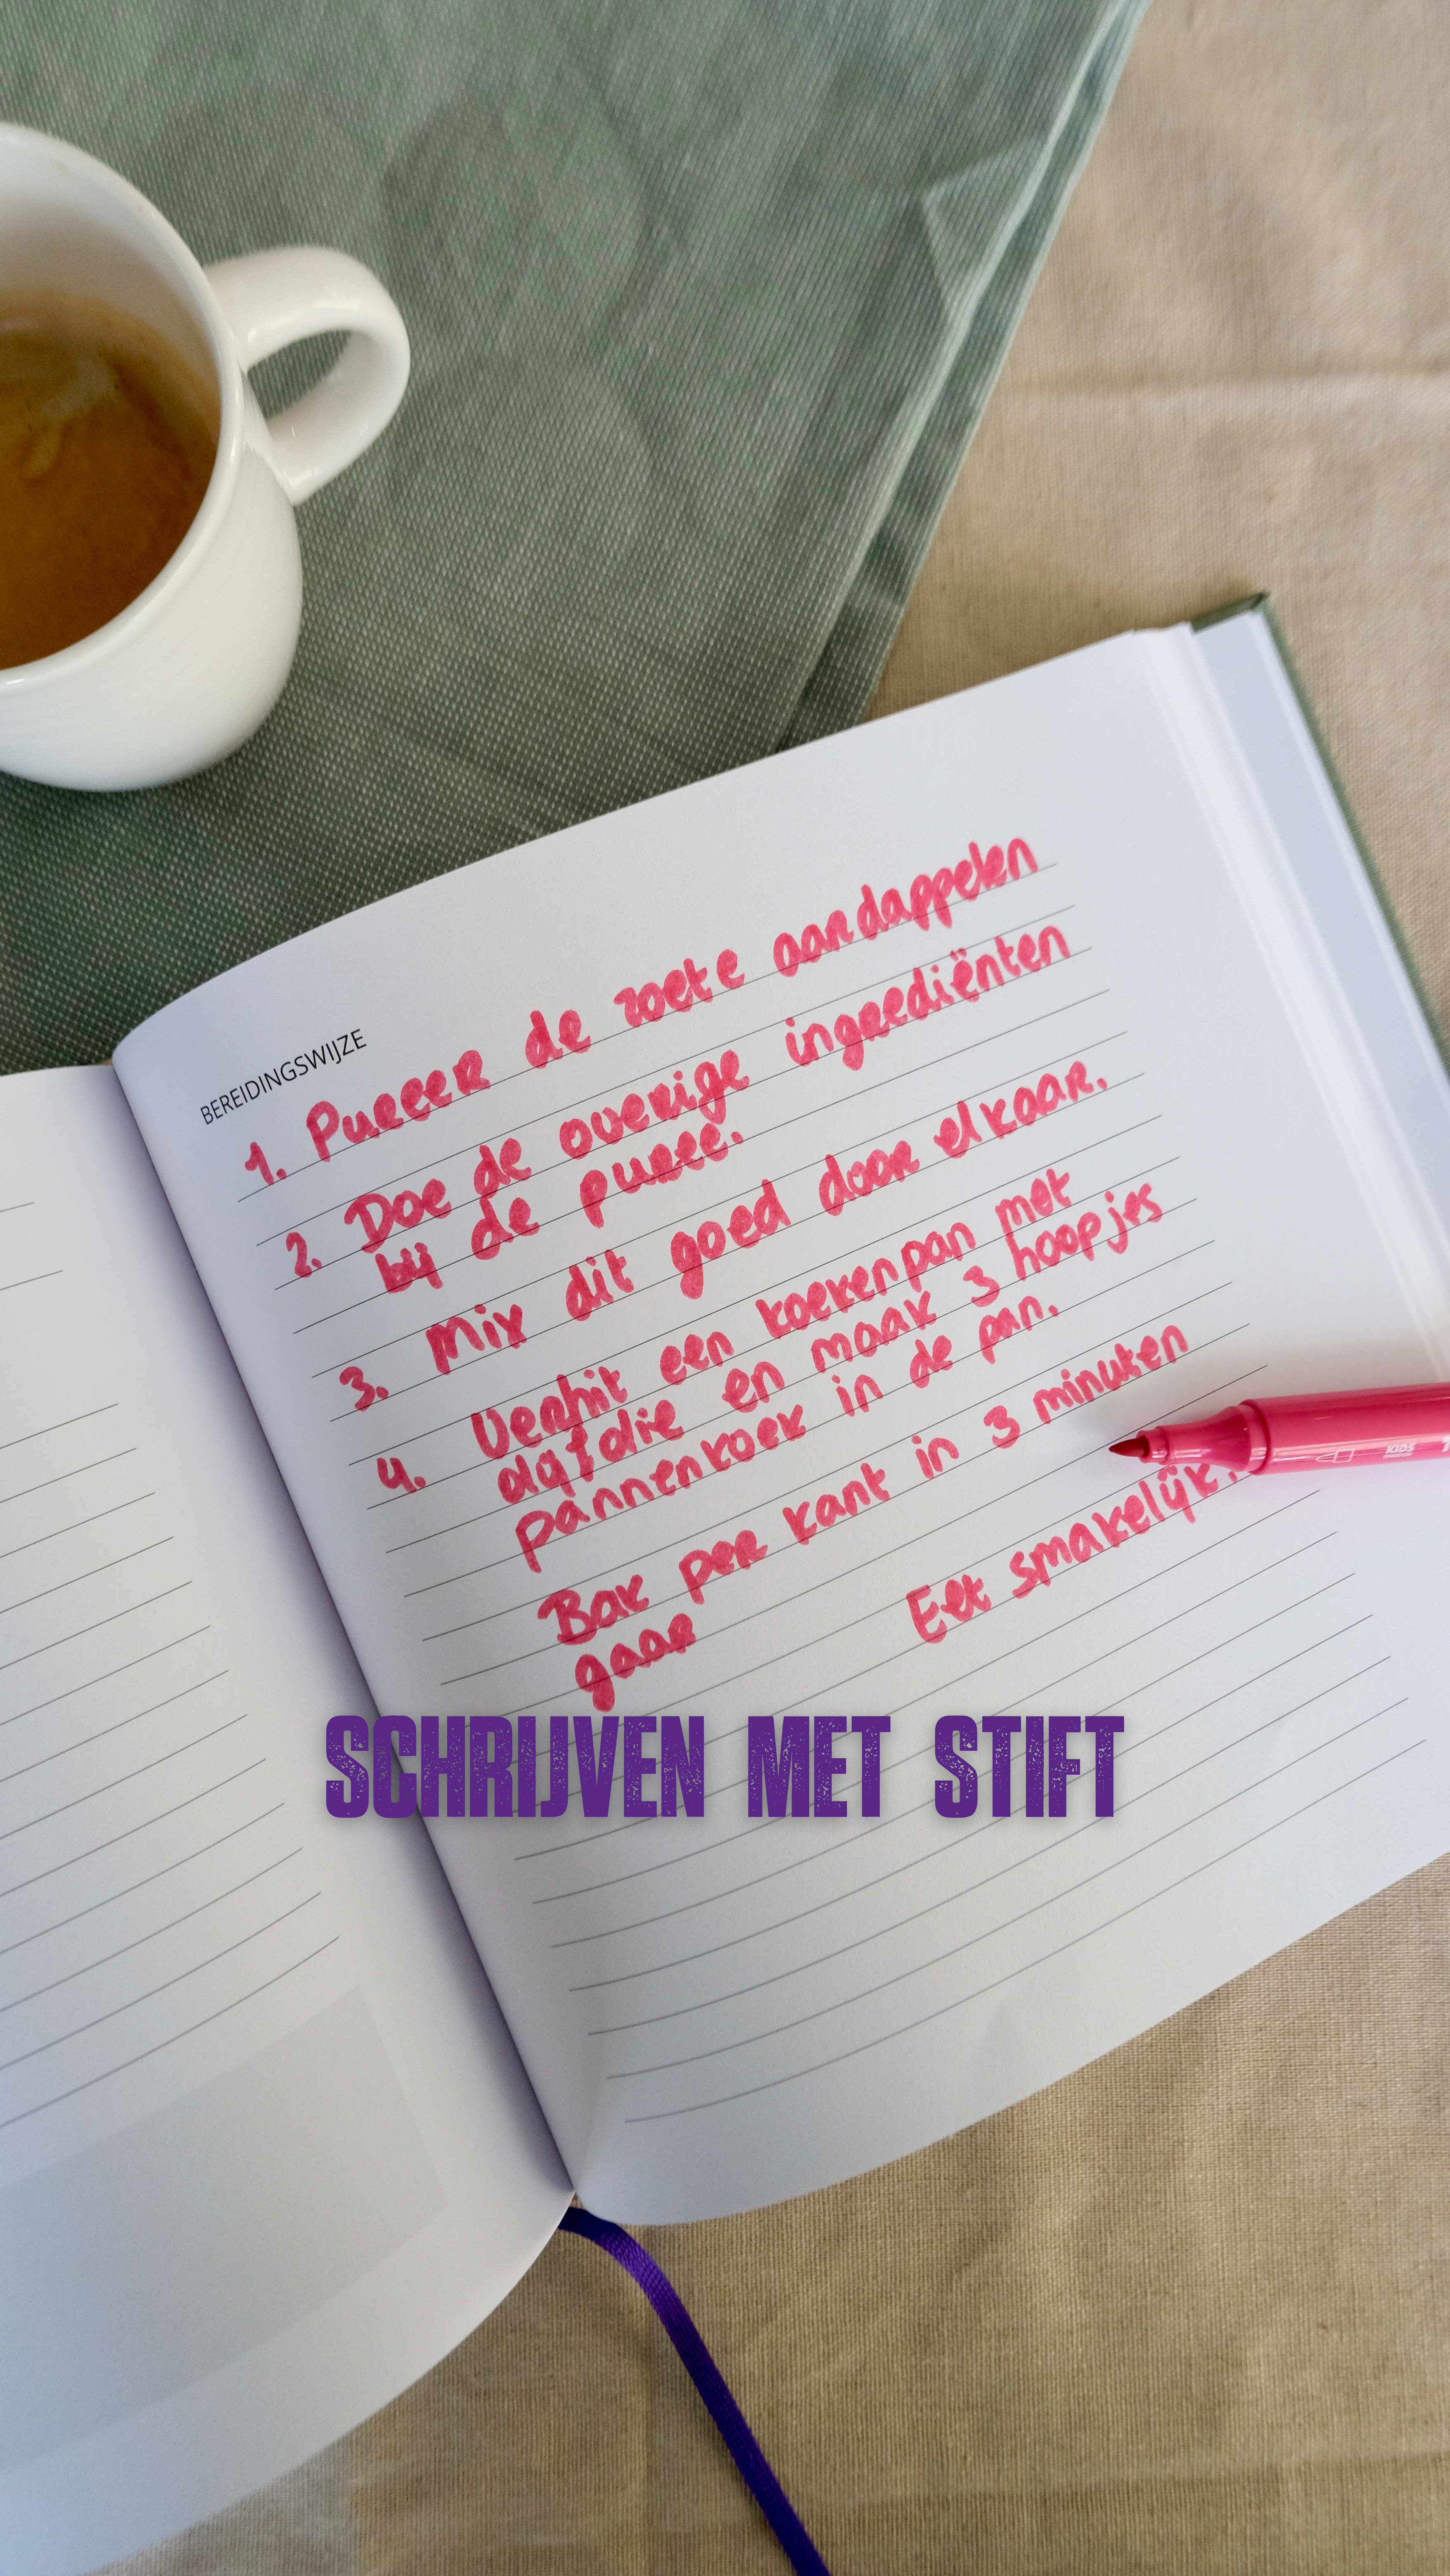 BEREIDINGSWIJZE
1. Pureer de zoete aardappelen
2. Doe de overige ingrediënten
bij de puree.
3. Mix dit goed door elkaar.
4. Verhit een koekenpan met
olijfolie en maak 3 hoopjes
pannenkoek in de pan.
Bak per kant in 3 minuten
gaar
Eet smakelijk!
KIDS
SCHRIJVEN MET STIFT